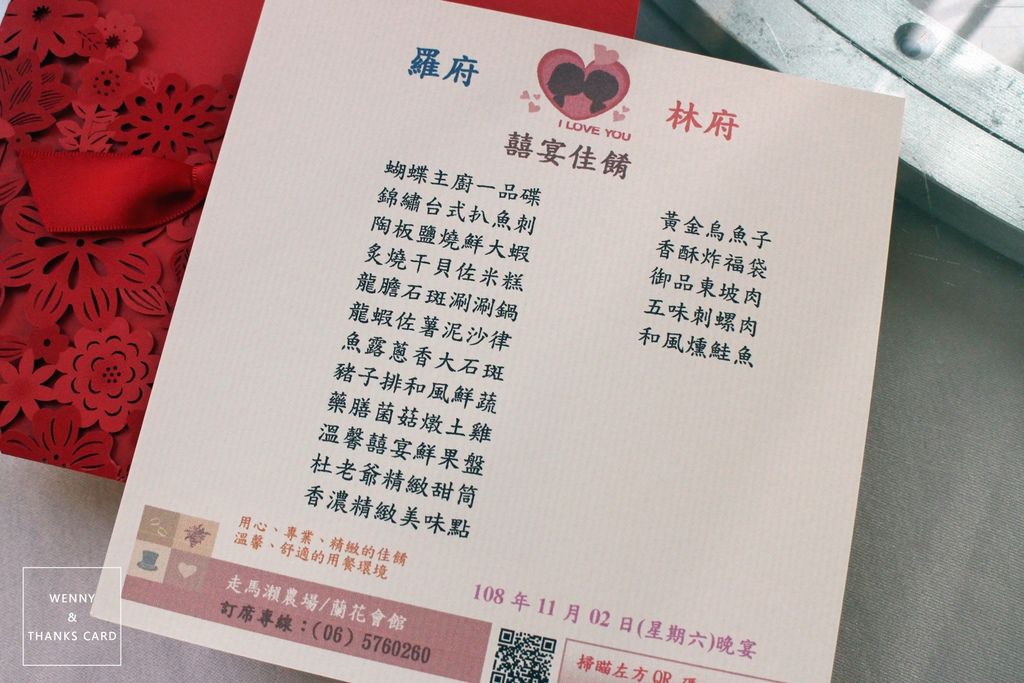 羅府
I LOVE YOU
林府
囍宴佳餚
蝴蝶主廚一品碟
錦繡台式扒魚刺
陶板鹽燒鮮大蝦
炙燒干貝佐米糕
龍膽石斑涮涮鍋
龍蝦佐薯泥沙律
魚露蔥香大石斑
豬子排和風鮮蔬
藥膳菌菇燉土雞
溫馨囍宴鮮果盤
杜老爺精緻甜筒
香濃精緻美味點
黃金烏魚子
香酥炸福袋
御品東坡肉
五味刺螺肉
和風燻鮭魚
用心、專業、精緻的佳餚
溫馨、舒適的用餐環境
走馬瀨農場/蘭花會館
訂席專線：(06) 5760260
108 年 11 月 02 日(星期六)晚宴
掃瞄左方 QR 碼
WENNY
&
THANKS CARD